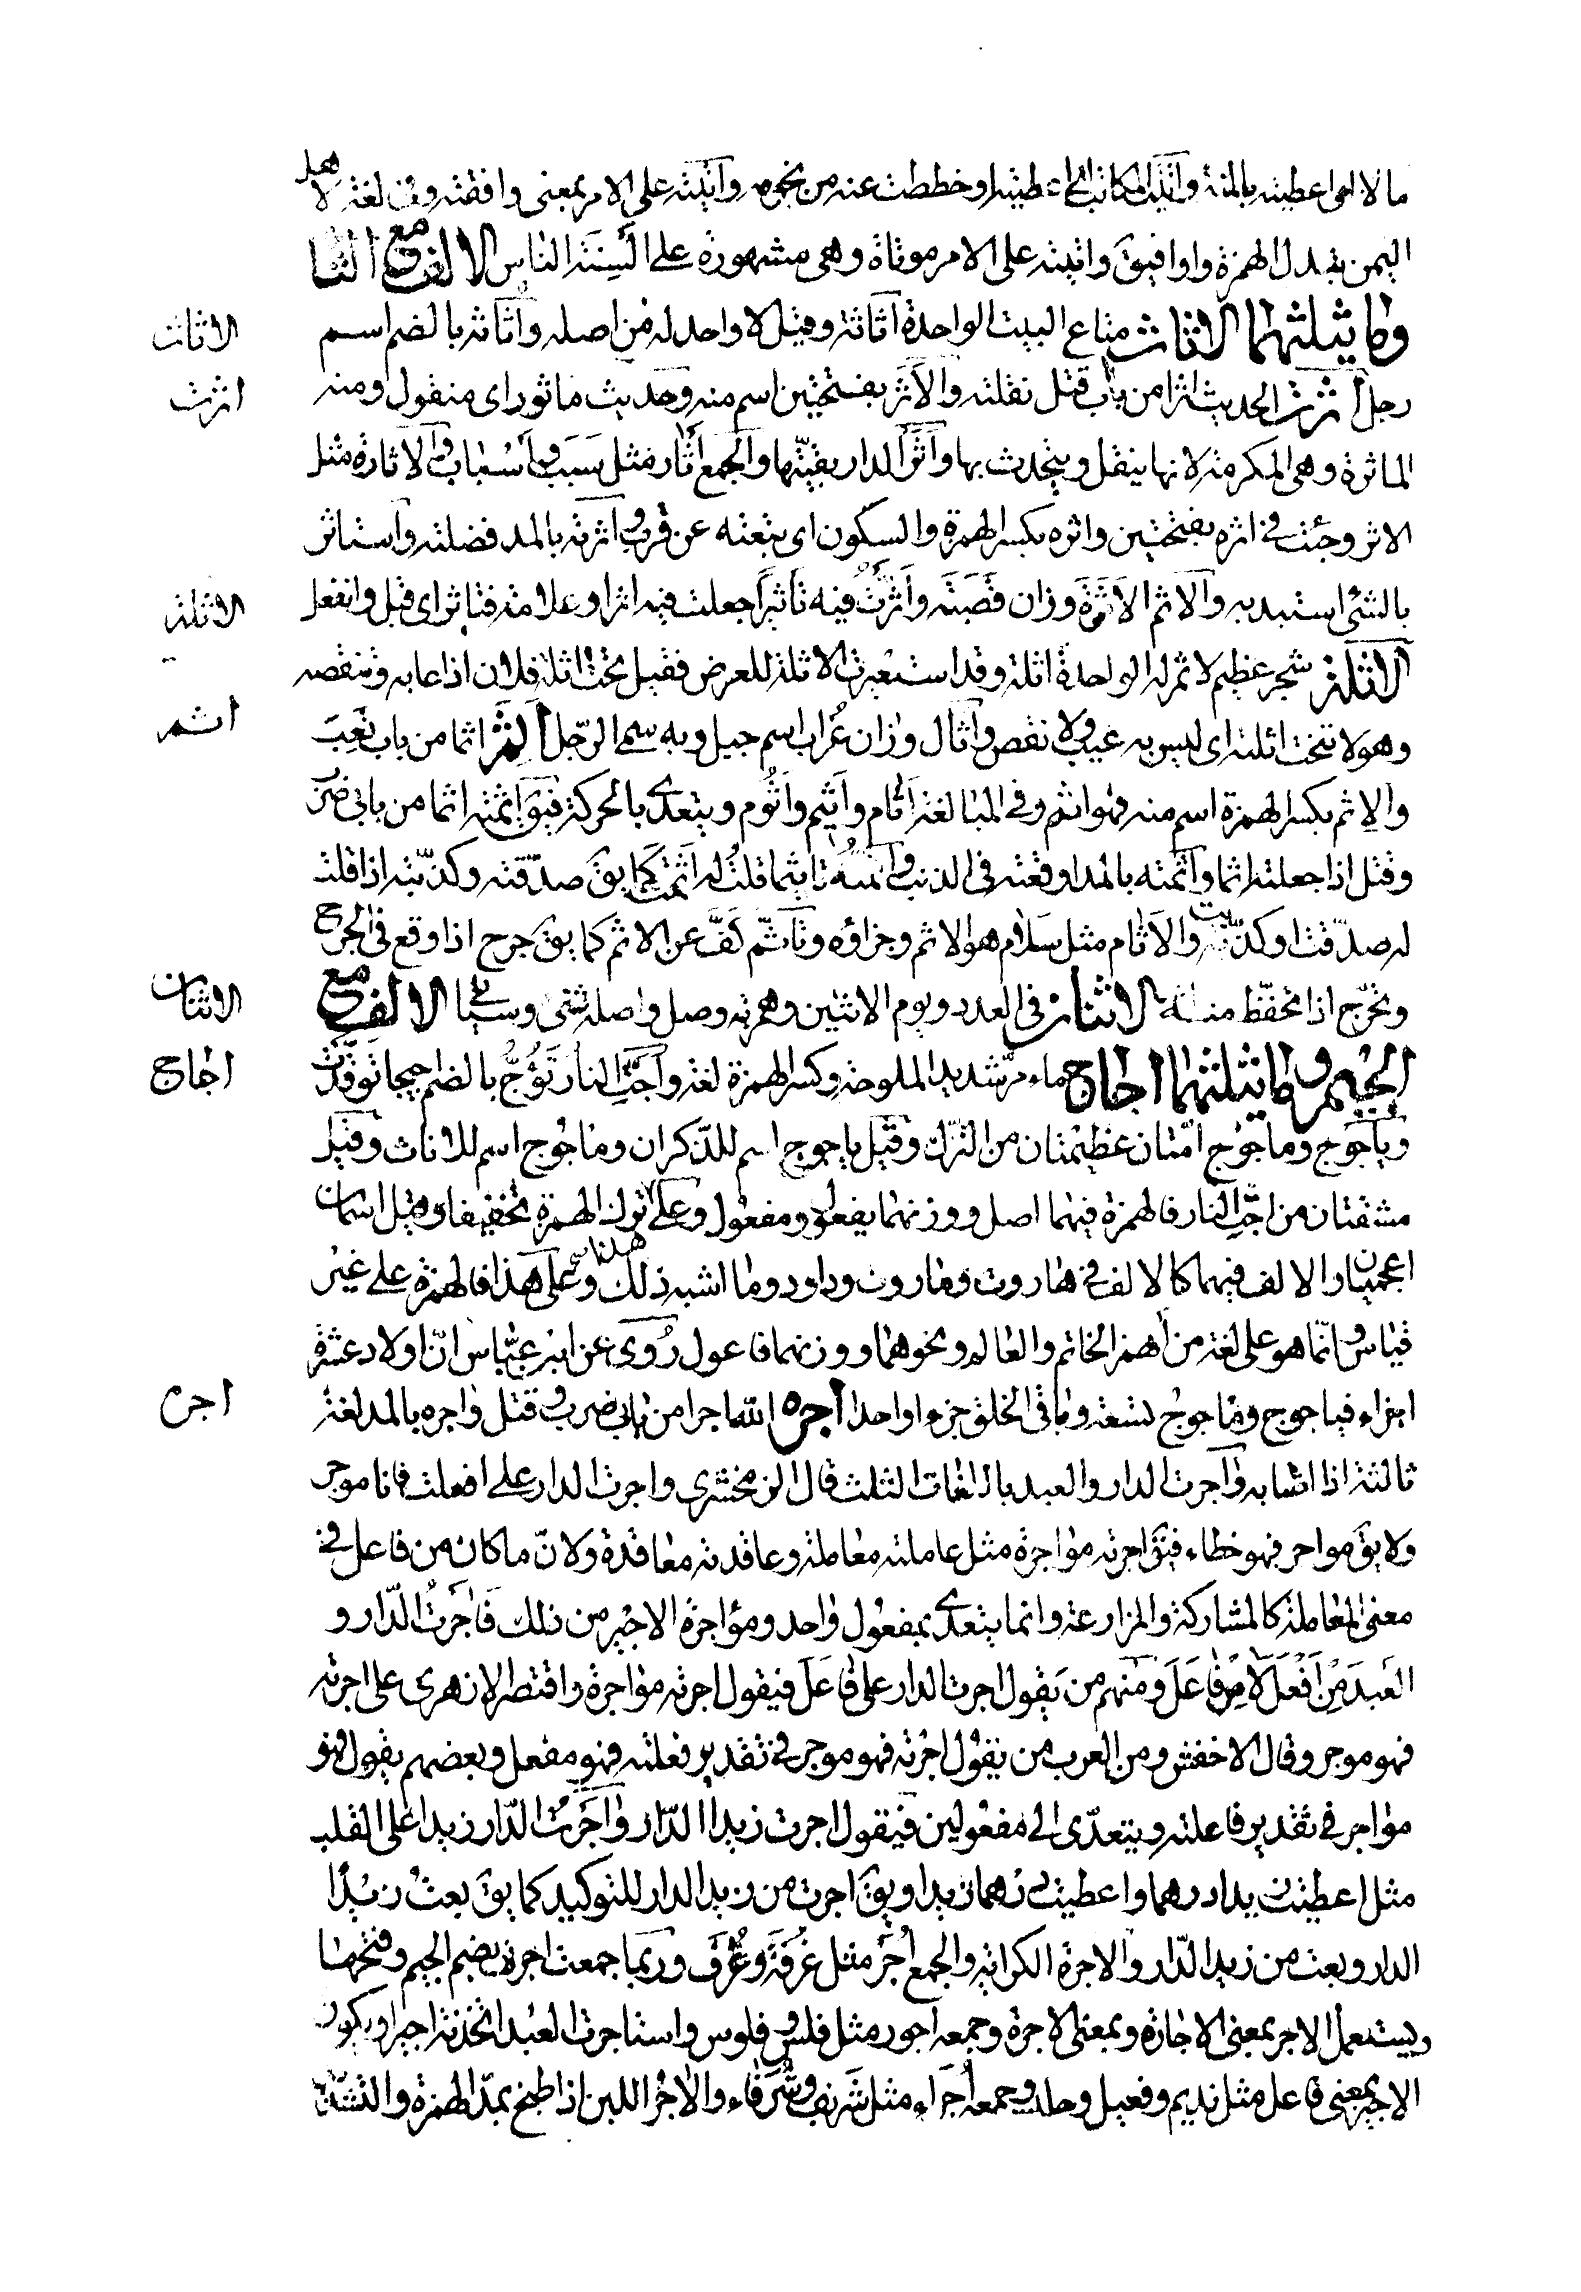 ما لا اى اعطيته بالمدّ وآتيت المكاتب اعطيته او حططت عنه من نجومه وآتيته على الامر بمعنى وافقته وفى لغة لاهل
اليمن تبدل الهمزة واوا فيق واتيته على الامر مواتاة وهى مشهورة على السنة الناس الالف مع الثا
وما يثلثهما الاثاث متاع البيت الواحدة اثاثة وقيل لا واحد له من اصله واثاثه بالضم اسم
الاثاث
رجل اثرت الحديث اثرا من باب قتل نقلته والاثر بفتحتين اسم منه وحديث ماثور اى منقول ومنه
اثرت
الماثرة وهى المكرمة لانها ينقل ويتحدث بها واثر الدار بقيتها والجمع اثار مثل سبب واسباب والاثارة مثل
الاثر وجئت فى اثره بفتحتين واثره بكسر الهمزة والسكون اى تبعته عن قرب واثرته بالمد فضلته واستاثر
بالشئ استبد به والاثم الاثرة وزان قصبة واثرت فيه تاثيرا جعلت فيه اثرا وعلامة فتاثر اى قبل وانفعل
الاثلة
الاثلة شجر عظيم لا ثمر له الواحدة اثلة وقد استعيرت الاثلة للعرض فقيل نحت اثلة فلان اذا عابه وتنقصه
وهو لا تنحت اثلته اى ليس به عيب ولا نقص واثال وزان غراب اسم جبل وبه سمى الرّجل اثم اثما من باب تعب
اثم
والاثم بكسر الهمزة اسم منه فهو اثم وفى المبالغة اثام واثيم واثوم ويتعدى بالحركة فيق اثمته اثما من بابى ضرب
وقتل اذا جعلته اثما واثمته بالمد اوقعته فى الذنب واثمته تاثيما قلت له اثمت كما يق صدّقته وكذّبته اذا قلت
له صدّقت او كذّبت والاثام مثل سلام هو الاثم وجزاؤه وتاثّم كفّ عن الاثم كما يق حرج اذا وقع فى الحرج
وتحرّج اذا تحفّظ منه الاثنان فى العدد ويوم الاثنين وهمزته وصل واصله ثنى وسياتى الالف مع
الاثنان
الجيم وما يثلثهما اجاج ماء مرّ شديد الملوحة وكسر الهمزة لغة واجّت النار تؤجّ بالضم اجيجا توقّدت
اجاج
وياجوج وماجوج امّتان عظيمتان من الترك وقيل ياجوج اسم للذكران وماجوج اسم للاناث وقيل
مشتقتان من اجّت النار فالهمزة فيهما اصل ووزنهما يفعول ومفعول وعلى ترك الهمزة تخفيفا وقيل اسمان
اعجميان والالف فيهما كالالف فى هاروت وماروت وداود وما اشبه ذلك وعلى هذا فالهمزة على غير
قياس وانّما هو على لغة من همز الخاتم والعالم ونحوهما ووزنهما فاعول روى عن ابن عبّاس انّ اولاد عشرة
اجزاء فياجوج وماجوج تسعة وباقى الخلق جزء واحدا اجره الله اجرا من بابى ضرب وقتل واجره بالمد لغة
اجره
ثالثة اذا اثابه واجرت الدار والعبد باللغات الثلث قال الزمخشرى واجرت الدار على افعلت فانا موجر
ولا يق مواجر فهو خطاء فيق اجرته مواجرة مثل عاملته معاملة وعاقدته معاقدة ولانّ ما كان من فاعل فى
معنى المعاملة كالمشاركة والمزارعة وانما يتعدى بمفعول واحد ومؤاجرة الاجير من ذلك فاجرت الدّار و
العبد من افعل لا من فاعل ومنهم من يقول اجرت الدار على فاعل فيقول اجرته مؤاجرة واقتصر الازهرى على اجرته
فهو موجر وقال الاخفش ومن العرب من يقول اجرته فهو موجر فى تقدير فعلته فهو مفعل وبعضهم يقول فهو
مؤاجر فى تقدير فاعلته ويتعدّى الى مفعولين فيقول اجرت زيدا الدّار واجرت الدّار زيدا على القلب
مثل اعطيت زيدا درهما واعطيت درهما زيدا ويق اجرت من زيد الدار للتوكيد كما يق بعت زيدا
الدار وبعت من زيد الدّار والاجرة الكراء والجمع اجر مثل غرفة وغرف وربما جمعت اجرة بضم الجيم وفتحها
ويستعمل الاجر بمعنى الاجارة وبمعنى الاجرة وجمعه اجور مثل فلس وفلوس واستاجرت العبد اتخذته اجيرا ويكون
الاجير بمعنى فاعل مثل نديم وفعيل وحلد وجمعه اجراء مثل شريف وشرفاء والاجر اللبن اذا طبخ بمدّ الهمزة والتشديد